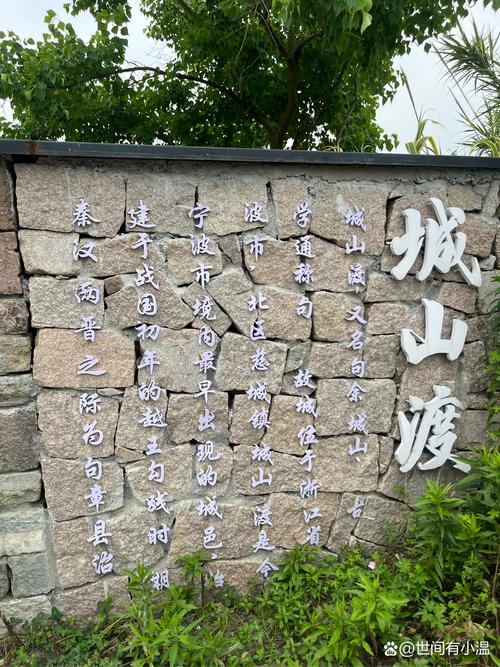 城山渡
城山渡又名句余城山、古
学通称句故城位于浙江省
波市北区慈城镇城山渡是今
宁波市境内最早出现的城邑，
建于战国初年的越王勾践时
秦汉两晋之际为句章县治
@世间有小温